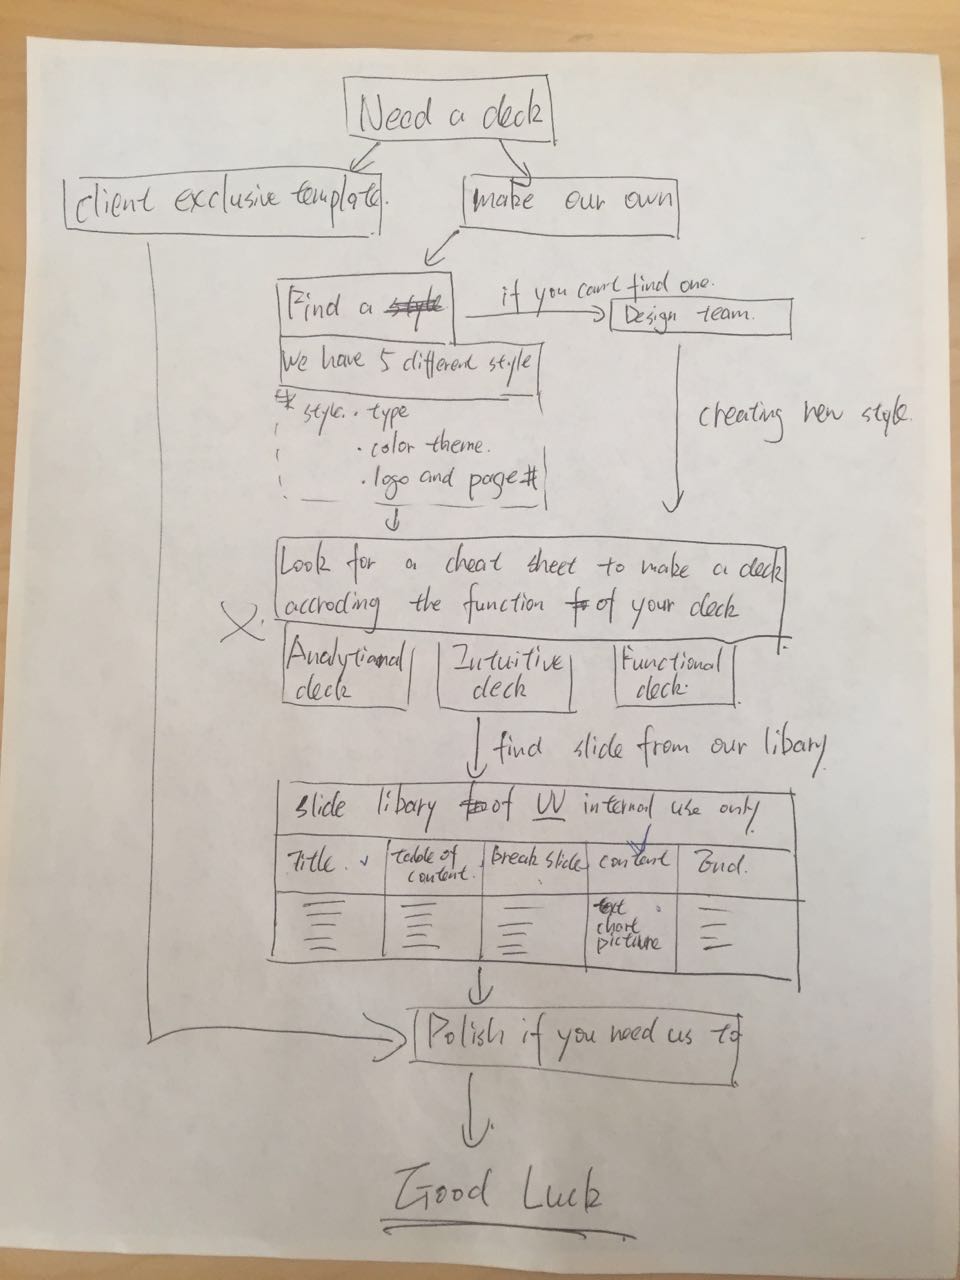 Need a deck
client exclusive template.
make our own
Find a style
if you can't find one.
Design team.
We have 5 different style
* style. · type
· color theme.
· logo and page #
creating new style.
Look for a cheat sheet to make a deck
accroding the function of your deck
X.
Analytional
deck
Intuitive
deck
Functional
deck.
find slide from our libary
slide libary of UV internal use only
Title.
table of
content.
Break slide
content
End.
text
chart
picture
Polish if you need us to
Good Luck